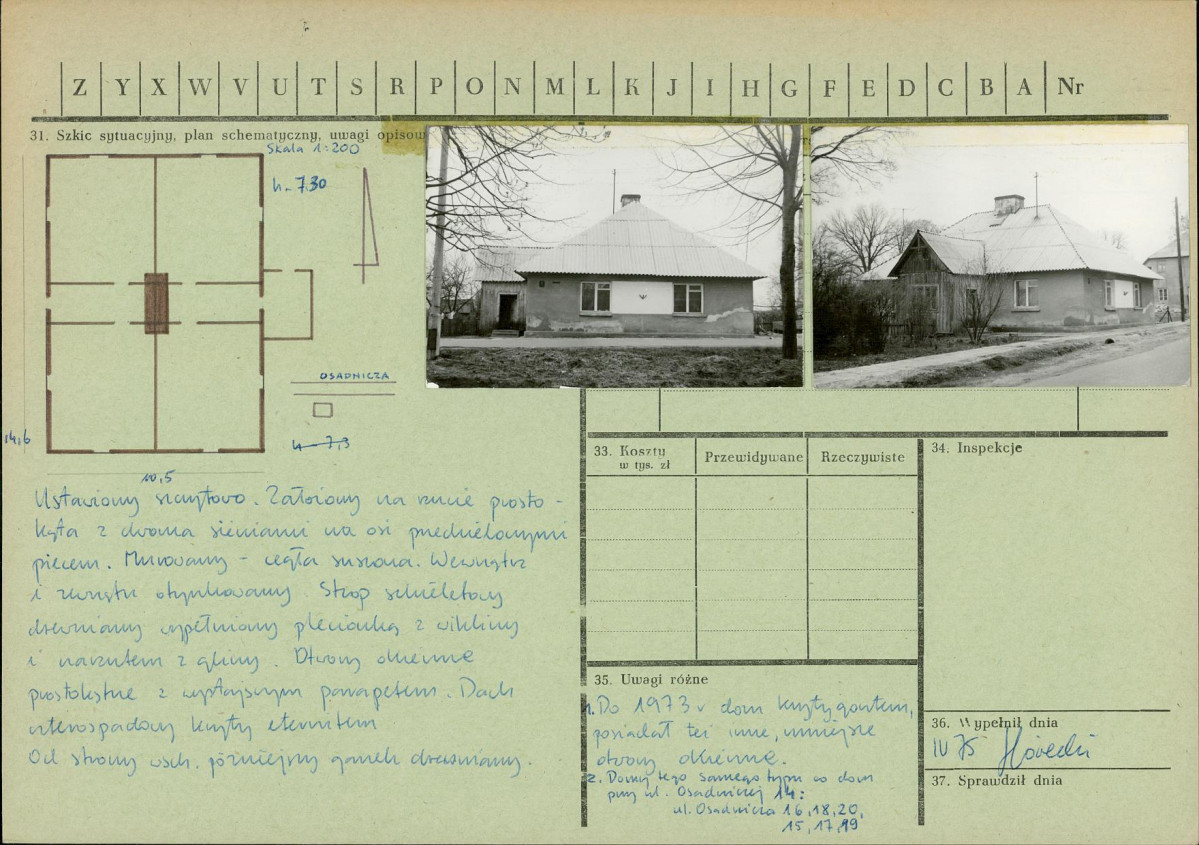 Z Y X W V U T S R P O N M L K J I H G F E D C B A Nr
31. Szkic sytuacyjny, plan schematyczny, uwagi opisow
Skala 1:200
h- 7.30
OSADNICZA
h- 7,3
14,6
10,5
Ustawiony szczytowo. Założony na rzucie prosto-
kąta z dwoma sieniami na osi przedzielonymi
piecem. Murowany - cegła suszona. Wewnątrz
i zewnątrz otynkowany. Strop szkieletowy
drewniany wypełniany plecionką z wikliny
i narzutem z gliny. Otwory okienne
prostokątne z wystającym parapetem. Dach
czterospadowy kryty eternitem
Od strony wsch. późniejszy ganek drewniany.
33. Koszty
w tys. zł
Przewidywane
Rzeczywiste
34. Inspekcje
35. Uwagi różne
1. Do 1973 r dom kryty gontem,
posiadał też inne, mniejsze
otwory okienne.
2. Domy tego samego typu co dom
przy ul. Osadniczej 14:
ul. Osadnicza 16, 18, 20,
15, 17, 19
36. Wypełnił dnia
IV 75
37. Sprawdził dnia